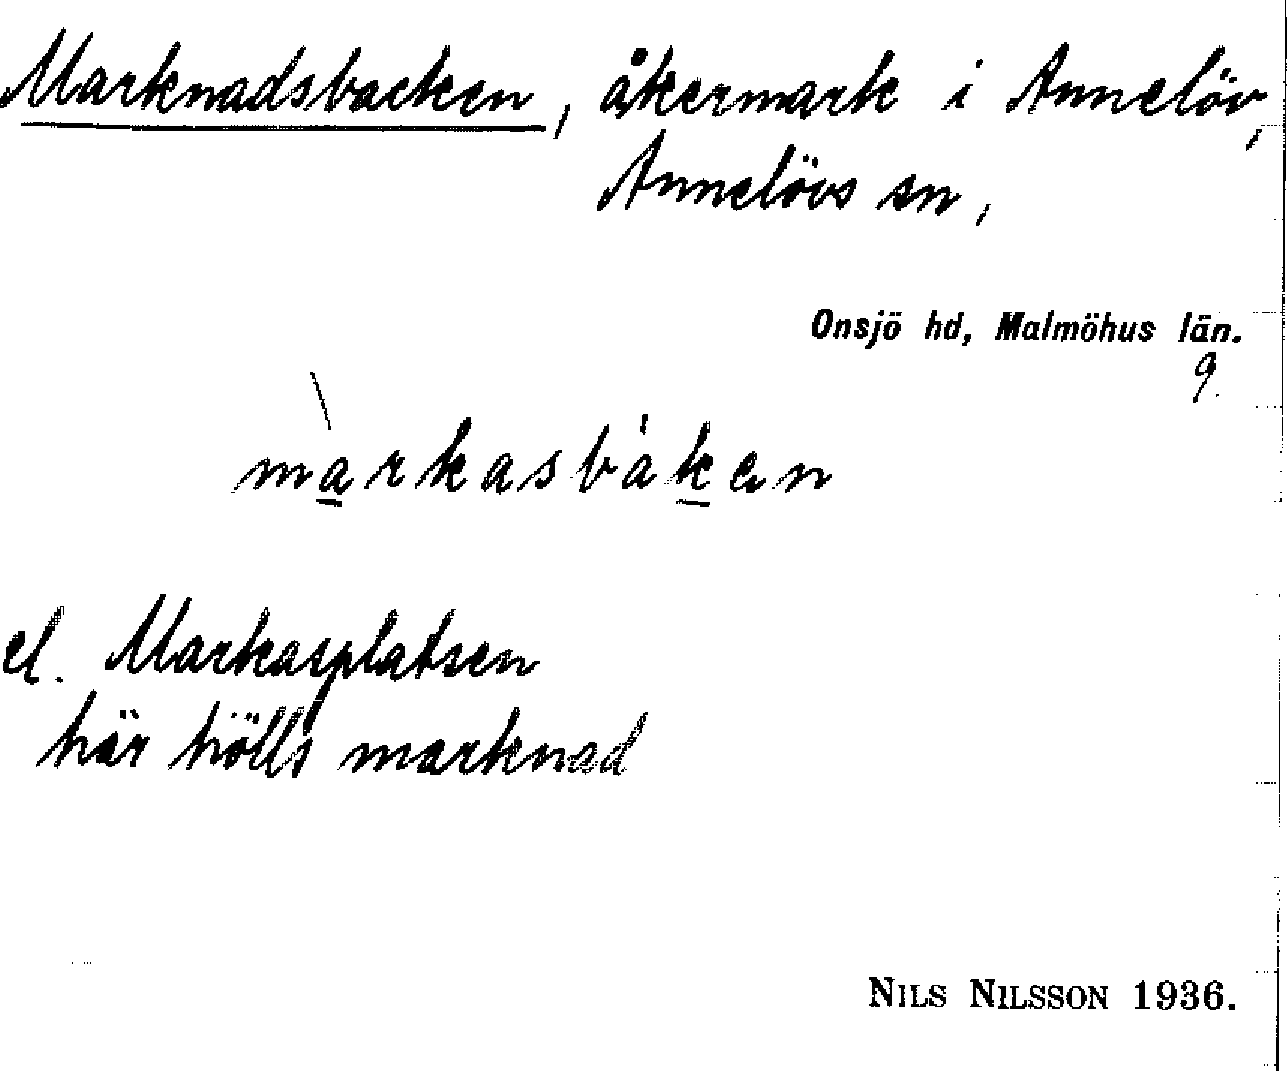 Marknadsbacken, åkermark i Annelöv,
Annelövs sn,
Onsjö hd, Malmöhus län.
9.
màrkasbáken
el. Markasplatsen
här hölls marknad
NILS NILSSON 1936.